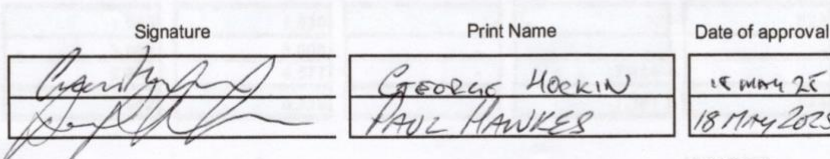 Signature Print Name Date of approval
GEORGE HOCKIN 18 MAY 25
PAUL HAWKES 18 MAY 2025